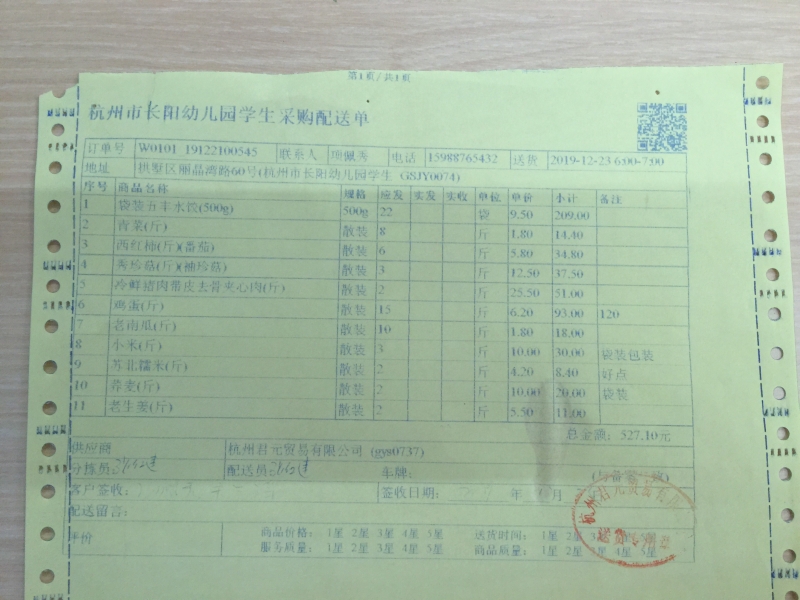 第1页/共1页
杭州市长阳幼儿园学生采购配送单
订单号 W0101 19122100545 联系人 项佩秀 电话 15988765432 送货 2019-12-23 6:00-7:00
地址 拱墅区丽晶湾路60号(杭州市长阳幼儿园学生 GSJY0074)
序号 商品名称 规格 应发 实发 实收 单位 单价 小计 备注
1 袋装五丰水饺(500g) 500g 22 袋 9.50 209.00
2 青菜(斤) 散装 8 斤 1.80 14.40
3 西红柿(斤)(番茄) 散装 6 斤 5.80 34.80
4 秀珍菇(斤)(袖珍菇) 散装 3 斤 12.50 37.50
5 冷鲜猪肉带皮去骨夹心肉(斤) 散装 2 斤 25.50 51.00
6 鸡蛋(斤) 散装 15 斤 6.20 93.00 120
7 老南瓜(斤) 散装 10 斤 1.80 18.00
8 小米(斤) 散装 3 斤 10.00 30.00 袋装包装
9 苏北糯米(斤) 散装 2 斤 4.20 8.40 好点
10 荞麦(斤) 散装 2 斤 10.00 20.00 袋装
11 老生姜(斤) 散装 2 斤 5.50 11.00
总金额: 527.10元
供应商 杭州君元贸易有限公司 (gys0737)
分拣员 配送员 车牌:
客户签收: 签收日期: 年 月
配送留言:
评价 商品价格: 1星 2星 3星 4星 5星 送货时间: 1星 2星
服务质量: 1星 2星 3星 4星 5星 商品质量: 1星 2星 3星 4星 5星